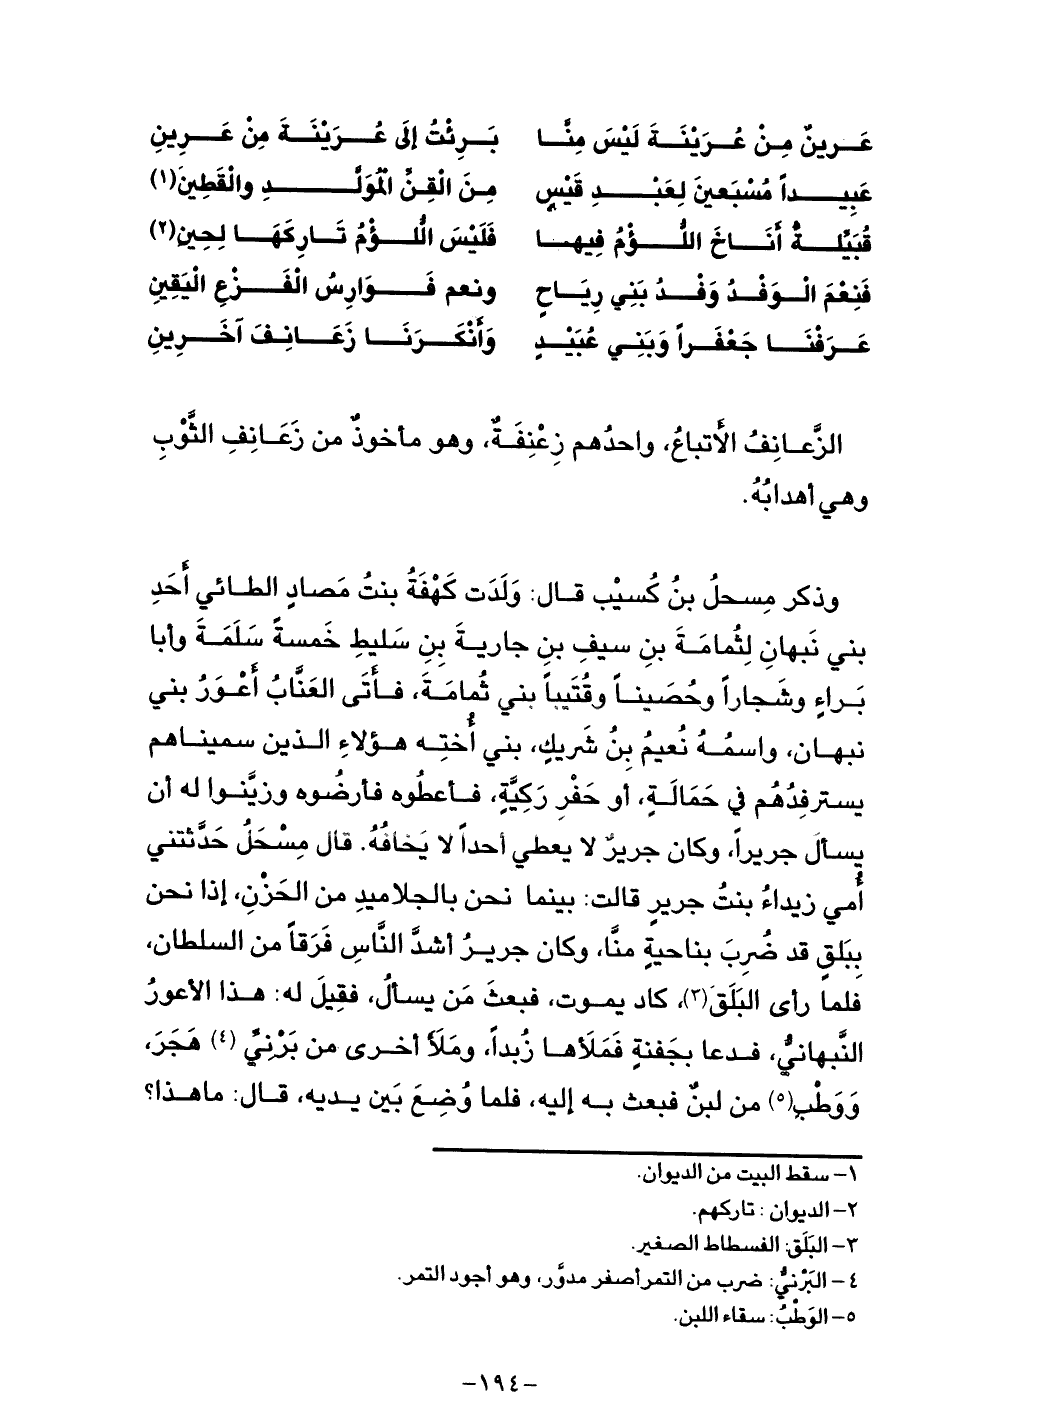 عَرينٌ مِنْ عُرَيْنَةَ لَيْسَ مِنَّا بَرِئْتُ إلَى عُرَيْنَةَ مِنْ عَرِينِ
عَبِيداً مُسْبَعينَ لِعَبْدِ قَيْسٍ مِنَ الْقِنِّ الْمُوَلَّدِ والْقَطِينَ(١)
قُبَيِّلةٌ أَنَاخَ اللُّؤْمُ فِيها فَلَيْسَ اللُّؤْمُ تَارِكَهَا لِحِينِ(٢)
فَنِعْمَ الْوَفْدُ وَفْدُ بَنِي رِيَاحٍ ونعم فَوَارِسُ الْفَزْعِ الْيَقِينِ
عَرَفْنَا جَعْفَراً وَبَنِي عُبَيْدٍ وَأَنْكَرْنَا زَعَانِفَ آخَرِينِ
الزَّعانِفُ الأَتباعُ، واحدُهم زِعْنِفَةٌ، وهو مأخوذٌ من زَعَانِفِ الثَّوْبِ
وهي أهدابُهُ.
وذكر مِسحلُ بنُ كُسيْب قال: وَلَدَت كَهْفَةُ بنتُ مَصادٍ الطائي أَحَدِ
بني نَبهانِ لِثُمامَةَ بنِ سيفِ بنِ جاريةَ بنِ سَليطِ خَمسةً سَلَمَةَ وأبا
بَراءٍ وشَجاراً وحُصَيناً وقُتَيباً بني ثُمامَةَ، فأَتَى العَنَّابُ أَعْوَرُ بني
نبهان، واسمُهُ نُعيمُ بنُ شَريكٍ، بني أُختِه هؤلاءِ الذين سميناهم
يسترفِدُهُم في حَمَالَةٍ، أو حَفْرِ رَكِيَّةٍ، فأعطُوه فأرضُوه وزيَّنوا له أن
يسألَ جريراً، وكان جريرٌ لا يعطي أحداً لا يَخافُهُ. قال مِسْحَلُ حَدَّثتني
أُمي زيداءُ بنتُ جريرٍ قالت: بينما نحن بالجلاميدِ من الحَزْنِ، إذا نحن
بِبَلَقٍ قد ضُرِبَ بناحيةٍ منَّا، وكان جريرُ أشدَّ النَّاسِ فَرَقاً من السلطان،
فلما رأى البَلَقَ(٣)، كاد يموت، فبعثَ مَن يسألُ، فقِيلَ له: هذا الأعورُ
النَّبهانيُّ، فدعا بجَفنةٍ فَمَلأها زُبداً، ومَلأَ أخرى من بَرْنِيِّ (٤) هَجَرَ،
وَوَطْبٍ(٥) من لبنٌ فبعث به إليه، فلما وُضِعَ بَين يديه، قال: ماهذا؟
١- سقط البيت من الديوان.
٢- الديوان : تاركهم.
٣- البَلَق: الفسطاط الصغير.
٤ - البَرْنيُّ: ضرب من التمر أصفر مدوَّر، وهو أجود التمر.
٥- الوَطْبُ: سقاء اللبن.
-١٩٤-